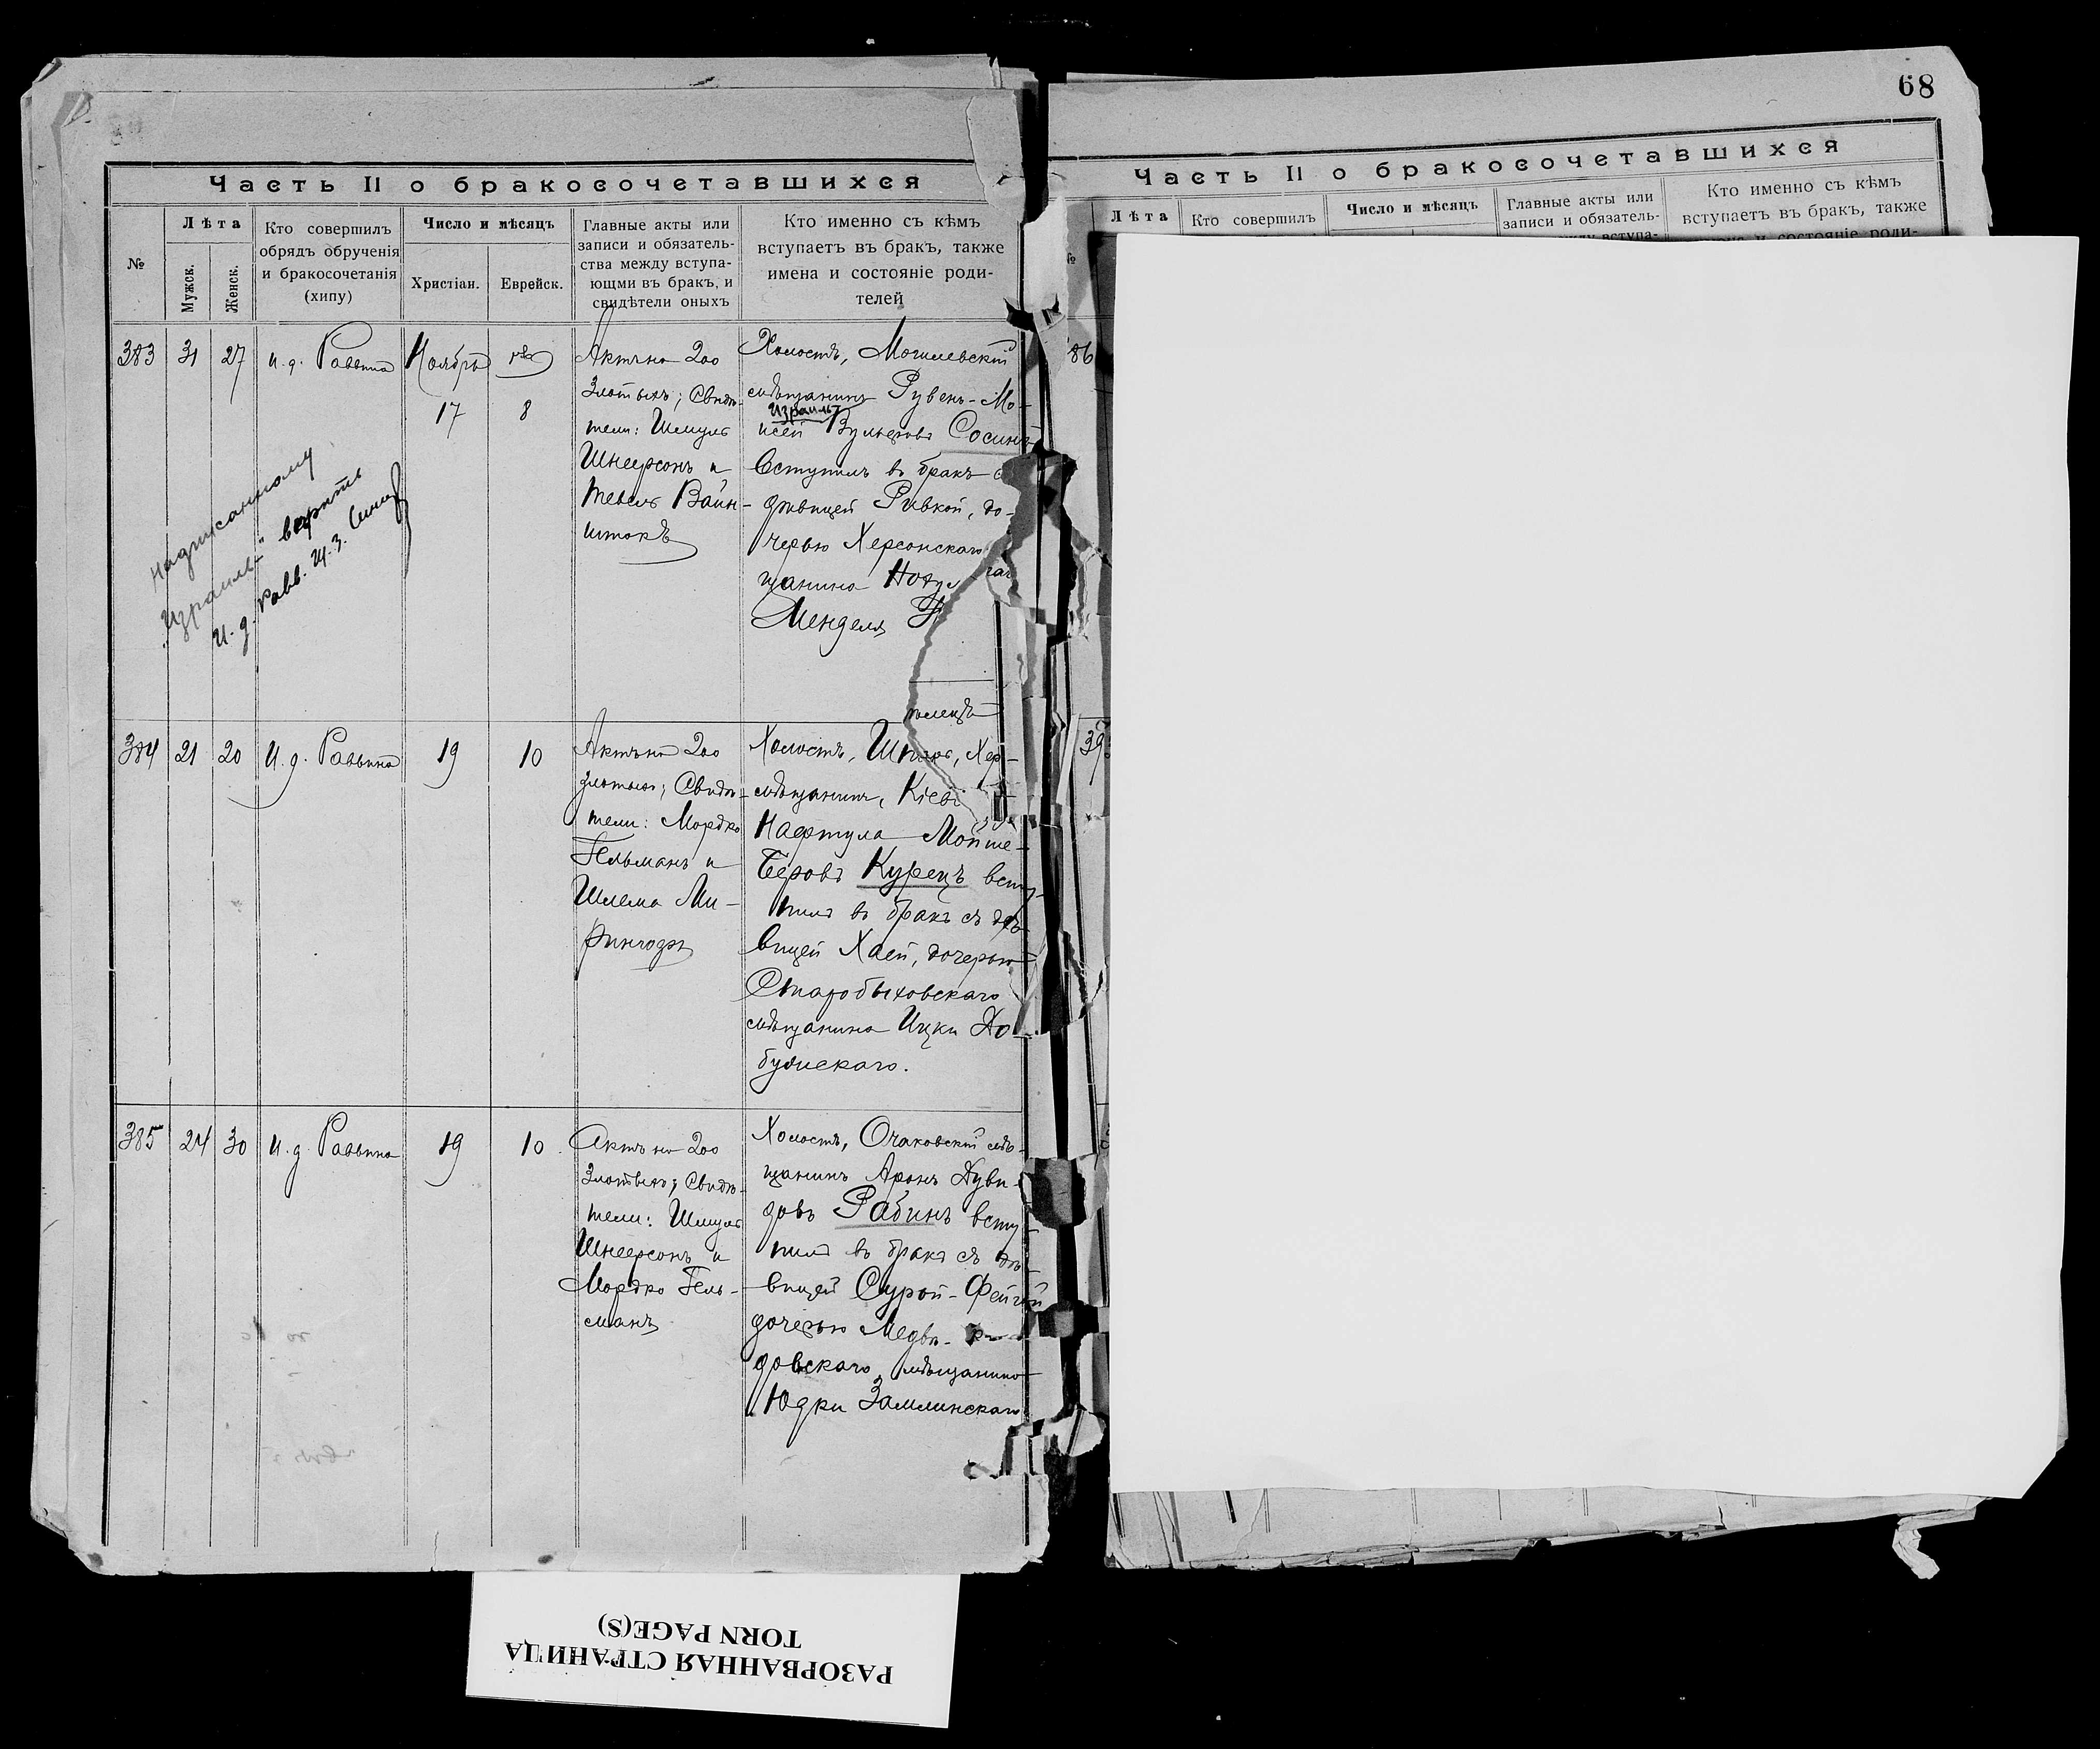 68
Часть II о бракосочетавшихся
№
Лѣта
Мужск.
Женск.
Кто совершилъ
обрядъ обрученія
и бракосочетанія
(хипу)
Число и мѣсяцъ
Христіан.
Еврейск.
Главные акты или
записи и обязатель-
ства между вступа-
ющми въ бракъ, и
свидѣтели оныхъ
Кто именно съ кѣмъ
вступаетъ въ бракъ, также
имена и состояніе роди-
телей
383
31
27
и. д. Раввина
Ноябрь
17
8
Актъ на 200
Злотыхъ; Свидѣ-
тели: Шмуль
Шнеерсонъ и
Тевель Вайн-
штокъ
Холостъ, Могилевскій
мѣщанинъ Рувенъ-Мо-
Израиль
исей Вульфовъ Сосинъ
Вступилъ въ бракъ
дѣвицей Ривкой, до-
черью Херсонскаго
щанина
Менделя
Надписанному
"Израиль" вѣрить
И. д. Равв.
384
21
20
И. д. Раввина
19
10
Актъ на 200
злотыхъ; Свидѣ-
тели: Мордко
Гельманъ и
Шлема Ми-
Холостъ,
мѣщанинъ,
Нафтула Мойше-
Беровъ Курецъ всту-
пилъ въ бракъ съ дѣ-
вицей Хаей, дочерью
Старобыховскаго
мѣщанина Ицки До-
385
24
30
и. д. Раввина
19
10
Актъ на 200
Злотыхъ; Свидѣ-
тели: Шмуль
Шнеерсонъ и
Мордко Гель-
манъ
Холостъ, Очаковскій мѣ-
щанинъ Аронъ Дуви-
довъ Рабинъ всту-
пилъ въ бракъ съ дѣ-
вицей Сурой-Фейгой
дочерью Медвѣ-
довскаго мѣщанина
Юдки Замлинскаго
Часть II о бракосочетавшихся
№
Лѣта
Кто совершилъ
Число и мѣсяцъ
Главные акты или
записи и обязатель-
Кто именно съ кѣмъ
вступаетъ въ бракъ, также
86
РАЗОРВАННАЯ СТРАНИЦА
TORN PAGE(S)